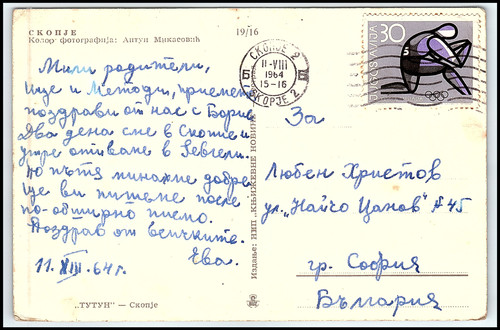 СКОПЈЕ
Колор фотографија: Антун Микасовић
19/16
СКОПЈЕ 2
11-VIII
1964
15-16
СКОРЈЕ 2
JUGOSLAVIJA
30
Мили родители,
Цце и Методи, приемете
поздрави от нас с Борис
Два дена сме в Скопие и
утре отиваме в Гевгели.
По пътя минахме добре
Ще ви пишеме после
по-обширно писмо.
Поздрав от всичките.
Ева.
11. VIII. 64 г.
За
Любен Христов
ул. „Найчо Цанов" № 45
гр. София
България
Издање: НИП „КЊИЖЕВНЕ НОВИНЕ"
„ТУТУН" — Скопје